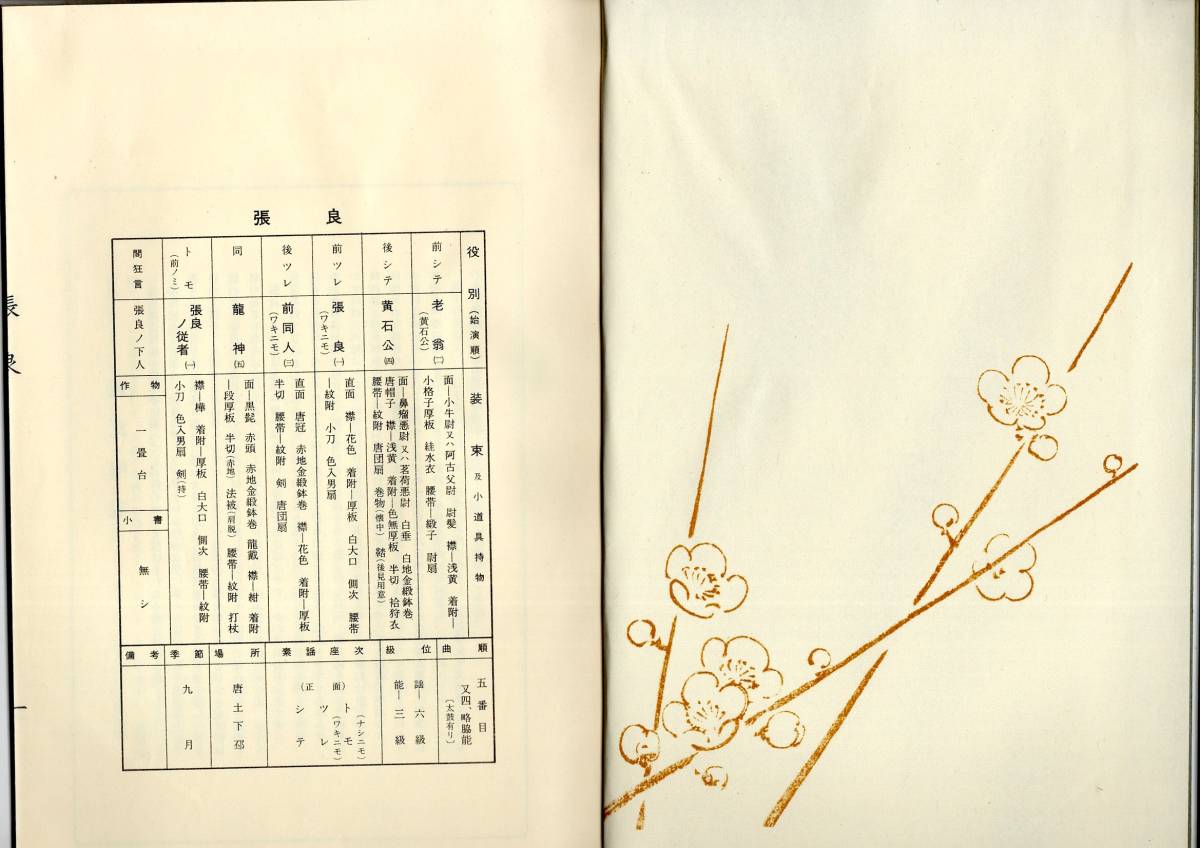 張良
役別(始演順)
装束及小道具持物
前シテ
老翁(二)
(黄石公)
面―小牛尉又ハ阿古父尉 尉髪 襟―浅黄 着附―
小格子厚板 絓水衣 腰帯―緞子 尉扇
後シテ
黄石公(四)
面―鼻瘤悪尉又ハ茗荷悪尉 白垂 白地金緞鉢巻
唐帽子 襟―浅黄 着附―色無厚板 半切 袷狩衣
腰帯―紋附 唐団扇 巻物(懐中) 鞜(後見用意)
前ツレ
張良(一)
(ワキニモ)
直面 襟―花色 着附―厚板 白大口 側次 腰帯
―紋附 小刀 色入男扇
後ツレ
前同人(三)
(ワキニモ)
直面 唐冠 赤地金緞鉢巻 襟―花色 着附―厚板
半切 腰帯―紋附 剣 唐団扇
同
龍神(五)
面―黒髭 赤頭 赤地金緞鉢巻 龍戴 襟―紺 着附
―段厚板 半切(赤地) 法被(肩脱) 腰帯―紋附 打杖
トモ
(前ノミ)
張良ノ従者(一)
襟―樺 着附―厚板 白大口 側次 腰帯―紋附
小刀 色入男扇 剣(持)
間狂言
張良ノ下人
作物
一畳台
小書
無シ
曲順
五番目
又四、略脇能
(太鼓有リ)
級位
謡―六級
能―三級
素謡座次
(ナシニモ)
トモ
(ワキニモ)
ツレ
シテ
(正面)
場所
唐土下邳
季節
九月
備考
張良
一